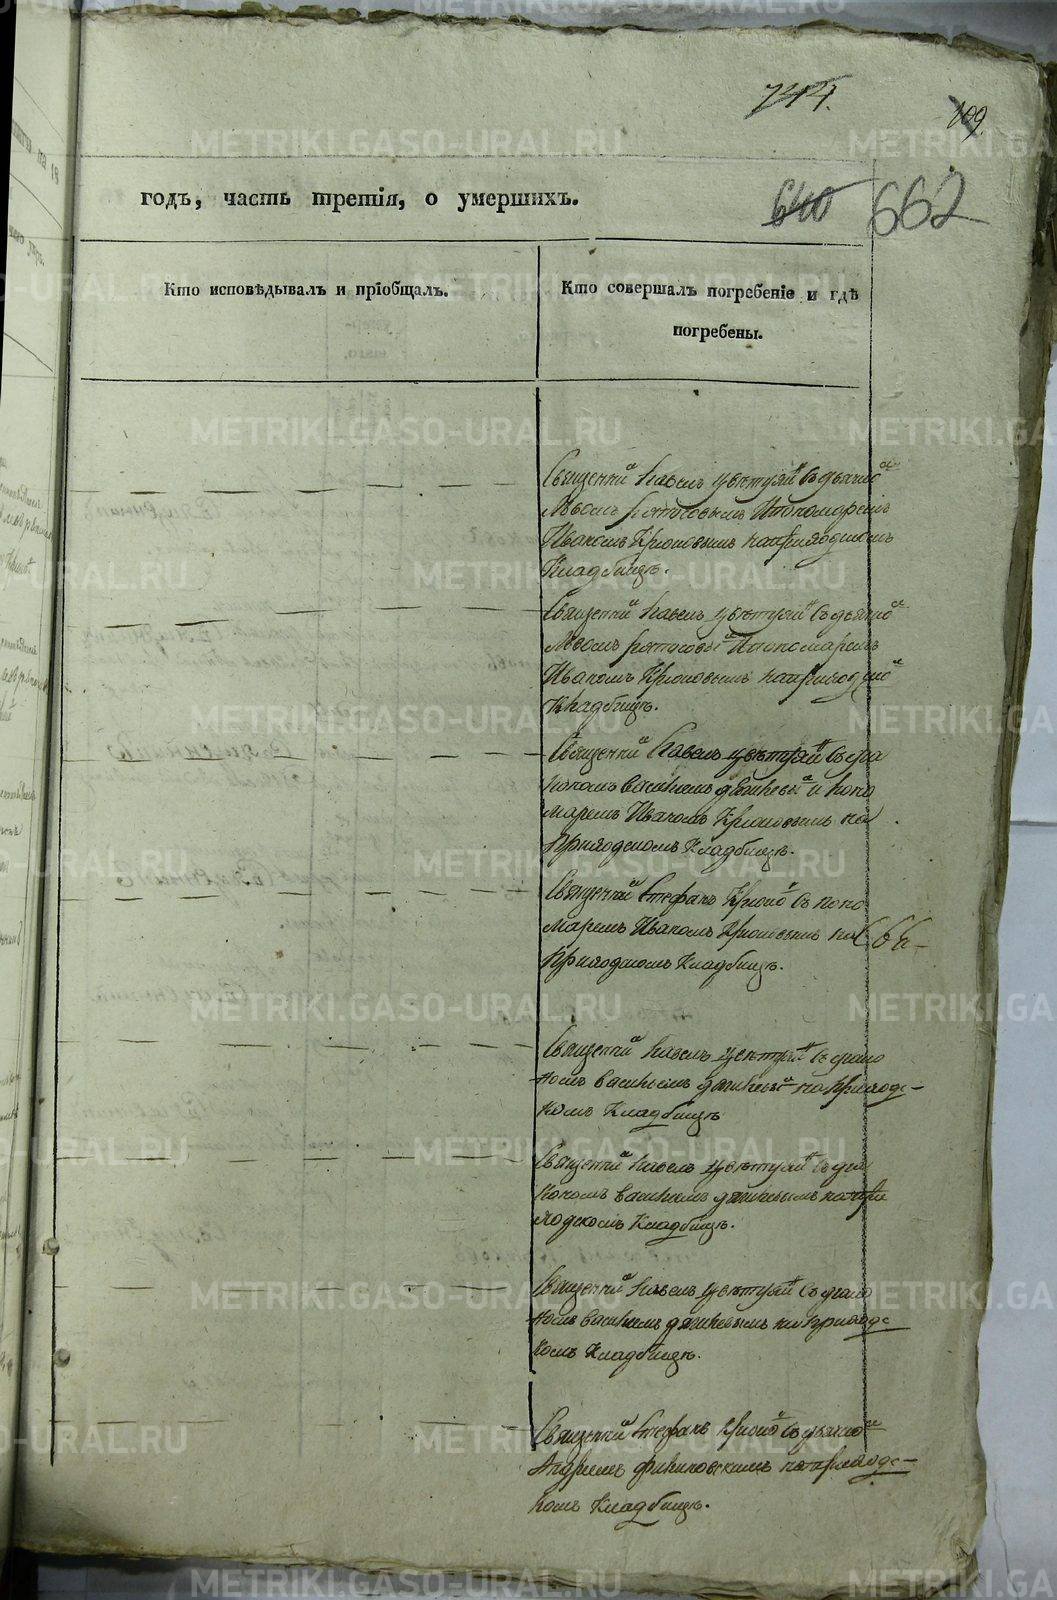 744.
109.
годъ, часть третія, о умершихъ.
640 662
Кто исповѣдывалъ и пріобщалъ.
Кто совершалъ погребеніе и гдѣ
погребены.
Священни Павелъ съ дьячко
Львомъ Пономаремъ
Иваномъ Крюковымъ наприходскомъ
Кладбищѣ.
Священни Павелъ съ дьячко
Львомъ Пономаремъ
Иваномъ Крюковымъ наприходско
Кладбищѣ.
Священни Павелъ съ диа
кономъ василиемъ и поно
маремъ Иваномъ Крюковымъ на
Приходскомъ Кладбищѣ.
Священни Стефанъ Крюко съ поно
маремъ Иваномъ Крюковымъ на
Приходскомъ Кладбищѣ.
Священни Павелъ съ диако
номъ василиемъ на приходс-
комъ Кладбищѣ
Священни Павелъ съ диа
кономъ василиемъ на при
ходскомъ Кладбищѣ.
Священни Павелъ съ диако
номъ василиемъ на приходс
комъ Кладбищѣ.
Священни Стефанъ Крюко съ дьячко
Андреемъ на приходс-
комъ Кладбищѣ.
METRIKI.GASO-URAL.RU